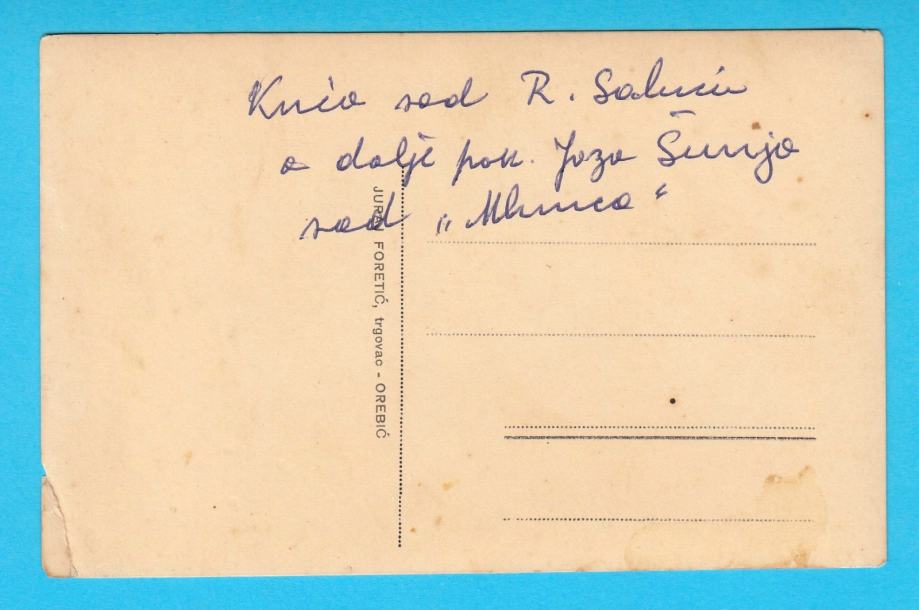 Kućo sad R. Salucu
a dalje pok. Joza Šunje
sad „
JURAJ FORETIĆ, trgovac - OREBIĆ